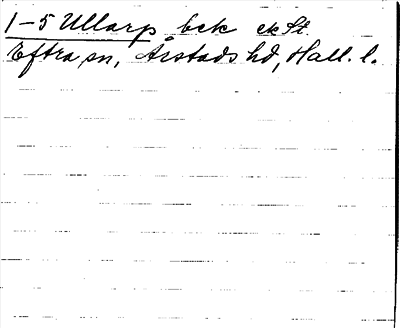 1-5 Ullarp bek ek St.
Eftra sn, Årstads hd, Hall. l.